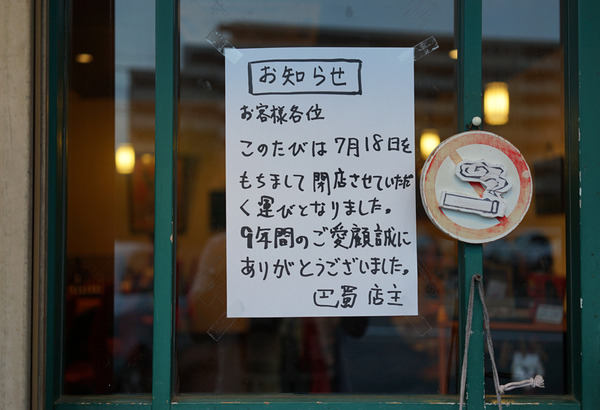 お知らせ
お客様各位
このたびは7月18日を
もちまして閉店させていただ
く運びとなりました。
9年間のご愛顧誠に
ありがとうございました。
巴蜀 店主